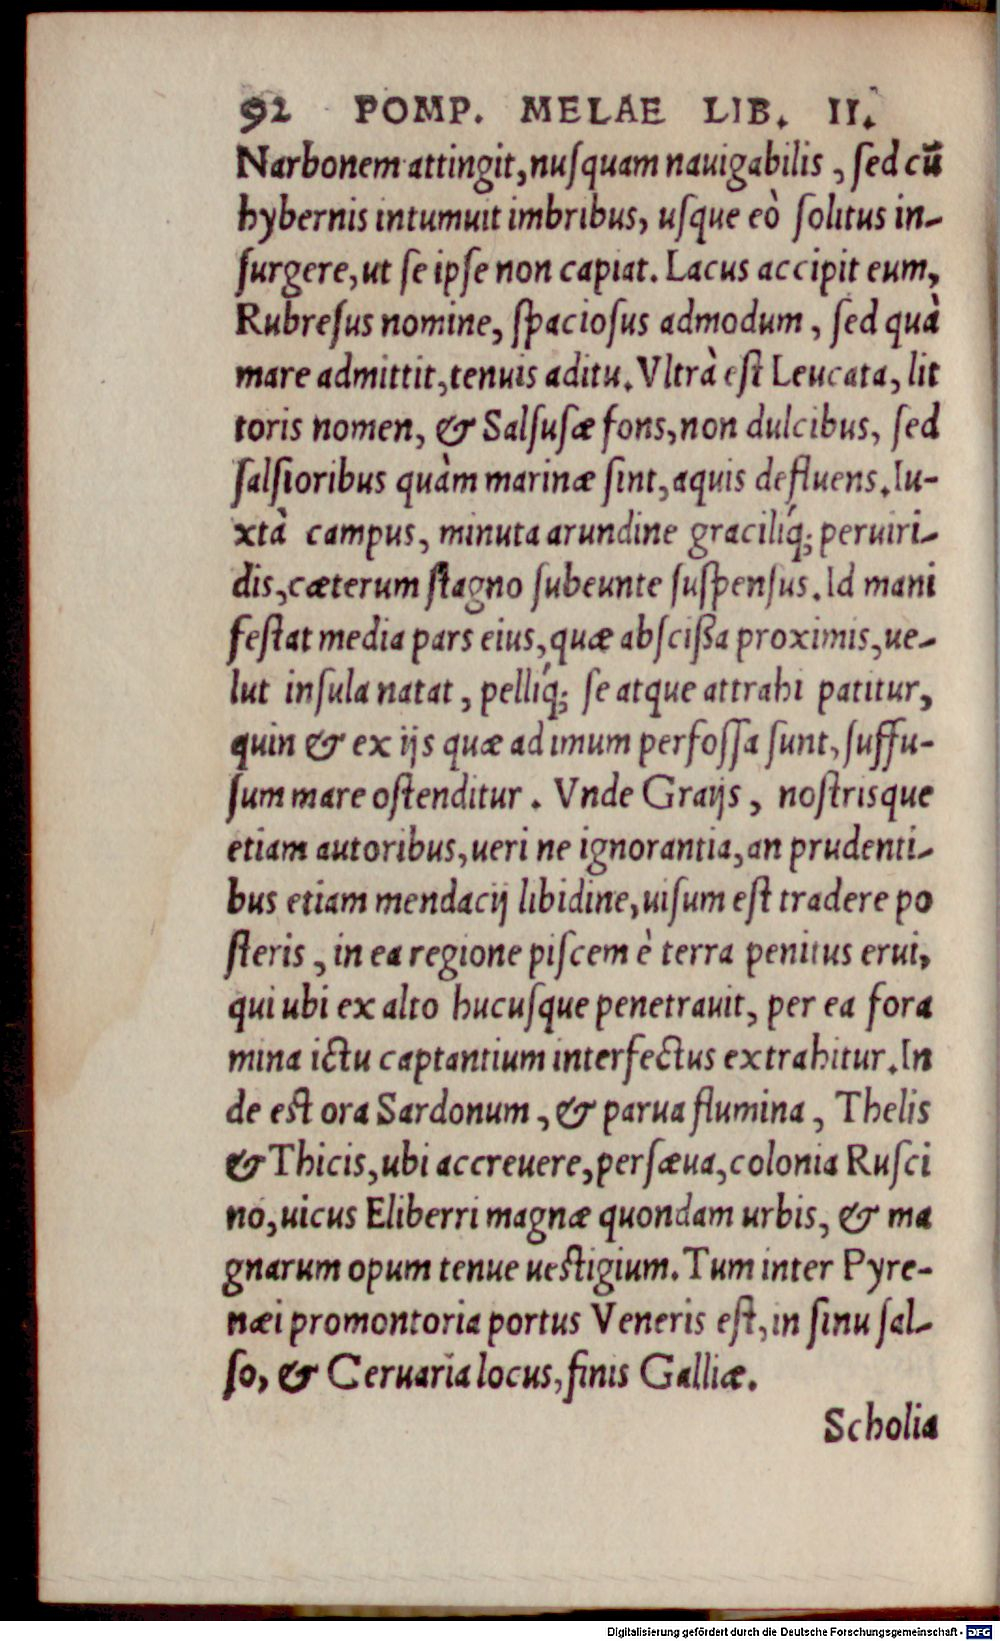 92 POMP. MELAE LIB. II.
Narbonem attingit, nuſquam nauigabilis, ſed cū
hybernis intumuit imbribus, uſque eò ſolitus in-
ſurgere, ut ſe ipſe non capiat. Lacus accipit eum,
Rubreſus nomine, ſpacioſus admodum, ſed quà
mare admittit, tenuis aditu. Vltrà eſt Leucata, lit
toris nomen, & Salſuſæ fons, non dulcibus, ſed
ſalſioribus quàm marinæ ſint, aquis defluens. Iu-
xtà campus, minuta arundine graciliq́; peruiri-
dis, cæterum ſtagno ſubeunte ſuſpenſus. Id mani
feſtat media pars eius, quæ abſciſſa proximis, ue-
lut inſula natat, pelliq́; ſe atque attrahi patitur,
quin & ex ijs quæ ad imum perfoſſa ſunt, ſuffu-
ſum mare oſtenditur. Vnde Graijs, noſtrisque
etiam autoribus, ueri ne ignorantia, an prudenti-
bus etiam mendacij libidine, uiſum eſt tradere po
ſteris, in ea regione piſcem è terra penitus erui,
qui ubi ex alto hucuſque penetrauit, per ea fora
mina ictu captantium interfectus extrahitur. In
de eſt ora Sardonum, & parua flumina, Thelis
& Thicis, ubi accreuere, perſæua, colonia Ruſci
no, uicus Eliberri magnæ quondam urbis, & ma
gnarum opum tenue ueſtigium. Tum inter Pyre-
næi promontoria portus Veneris eſt, in ſinu ſal-
ſo, & Ceruaria locus, finis Galliæ.
Scholia
Digitalisierung gefördert durch die Deutsche Forschungsgemeinschaft - DFG